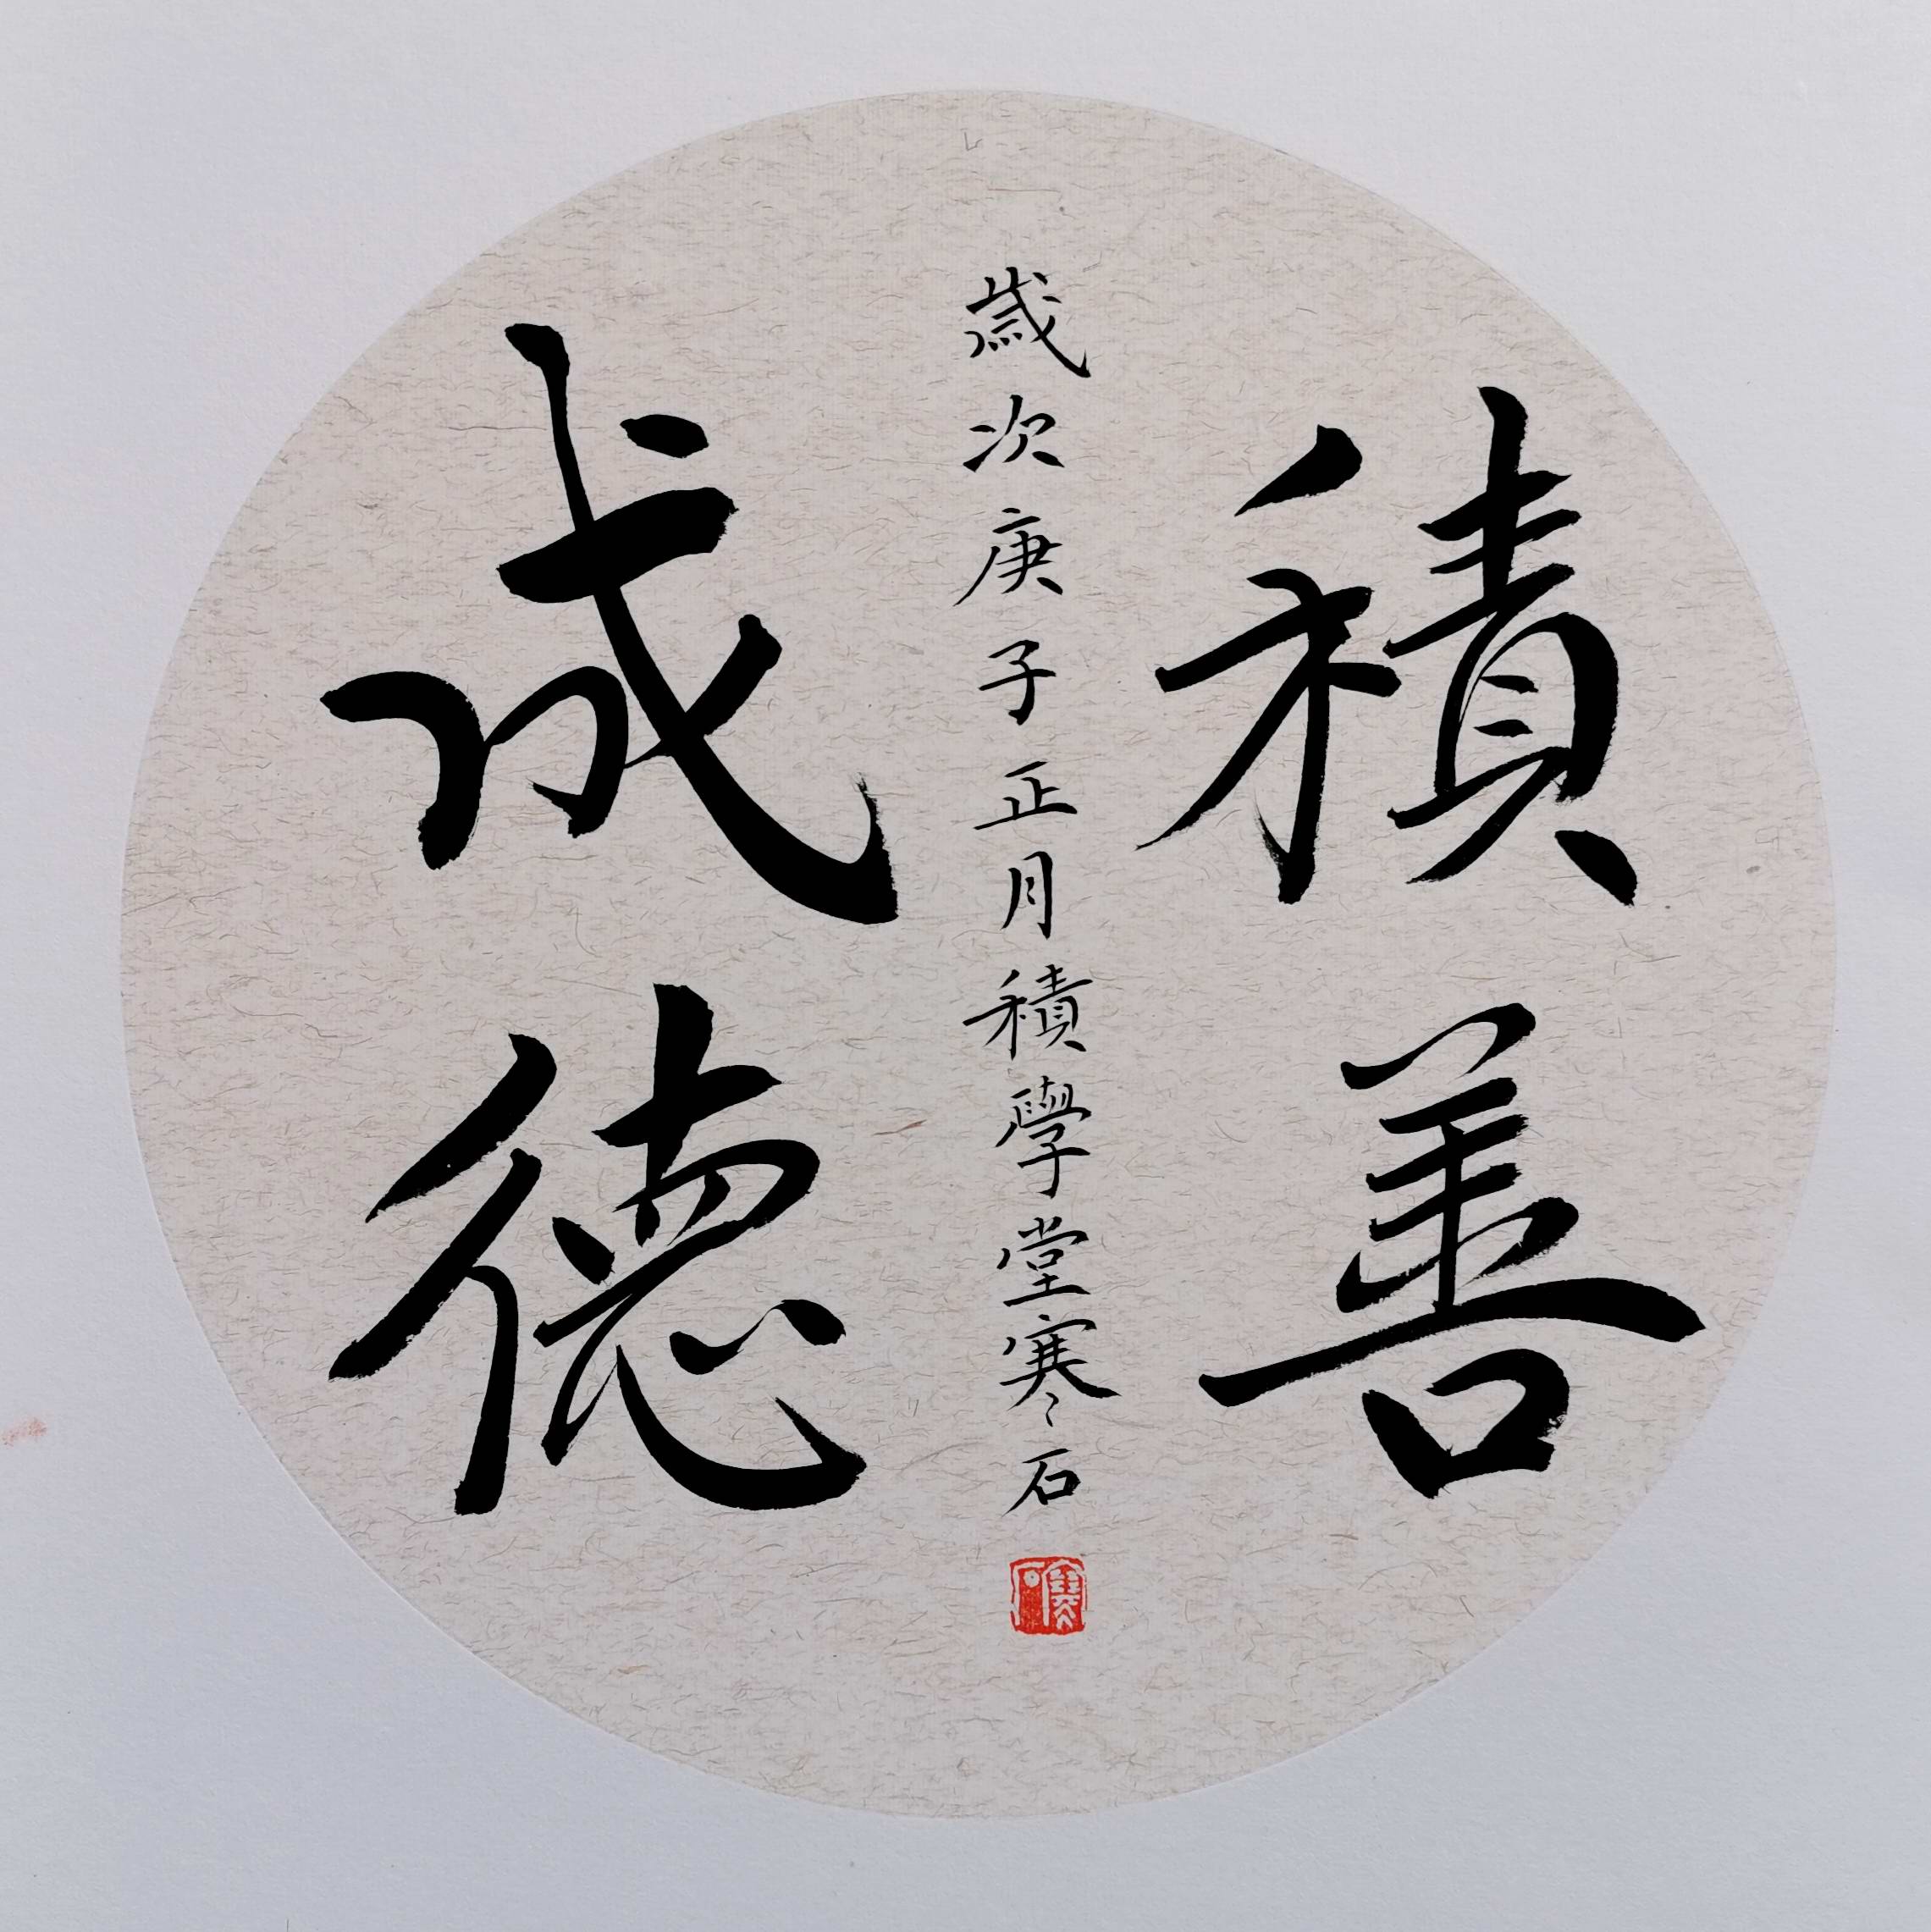 積善
成德
歲次庚子正月積學堂寒石
寒石